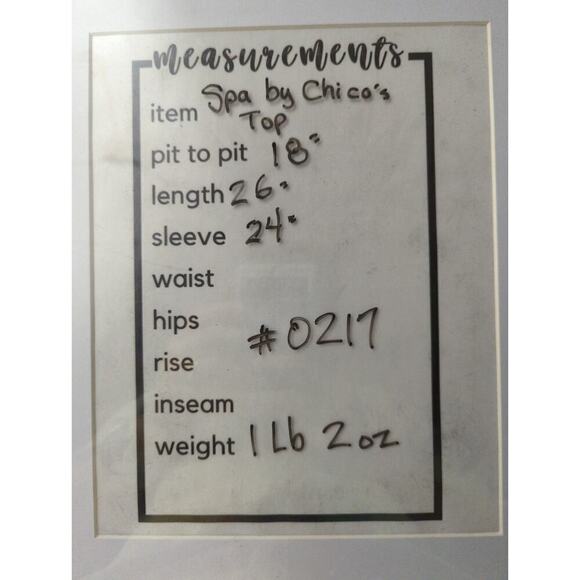 measurements
item Spa by Chico's
Top
pit to pit 18"
length 26"
sleeve 24"
waist
hips
#0217
rise
inseam
weight 1 Lb 2 oz